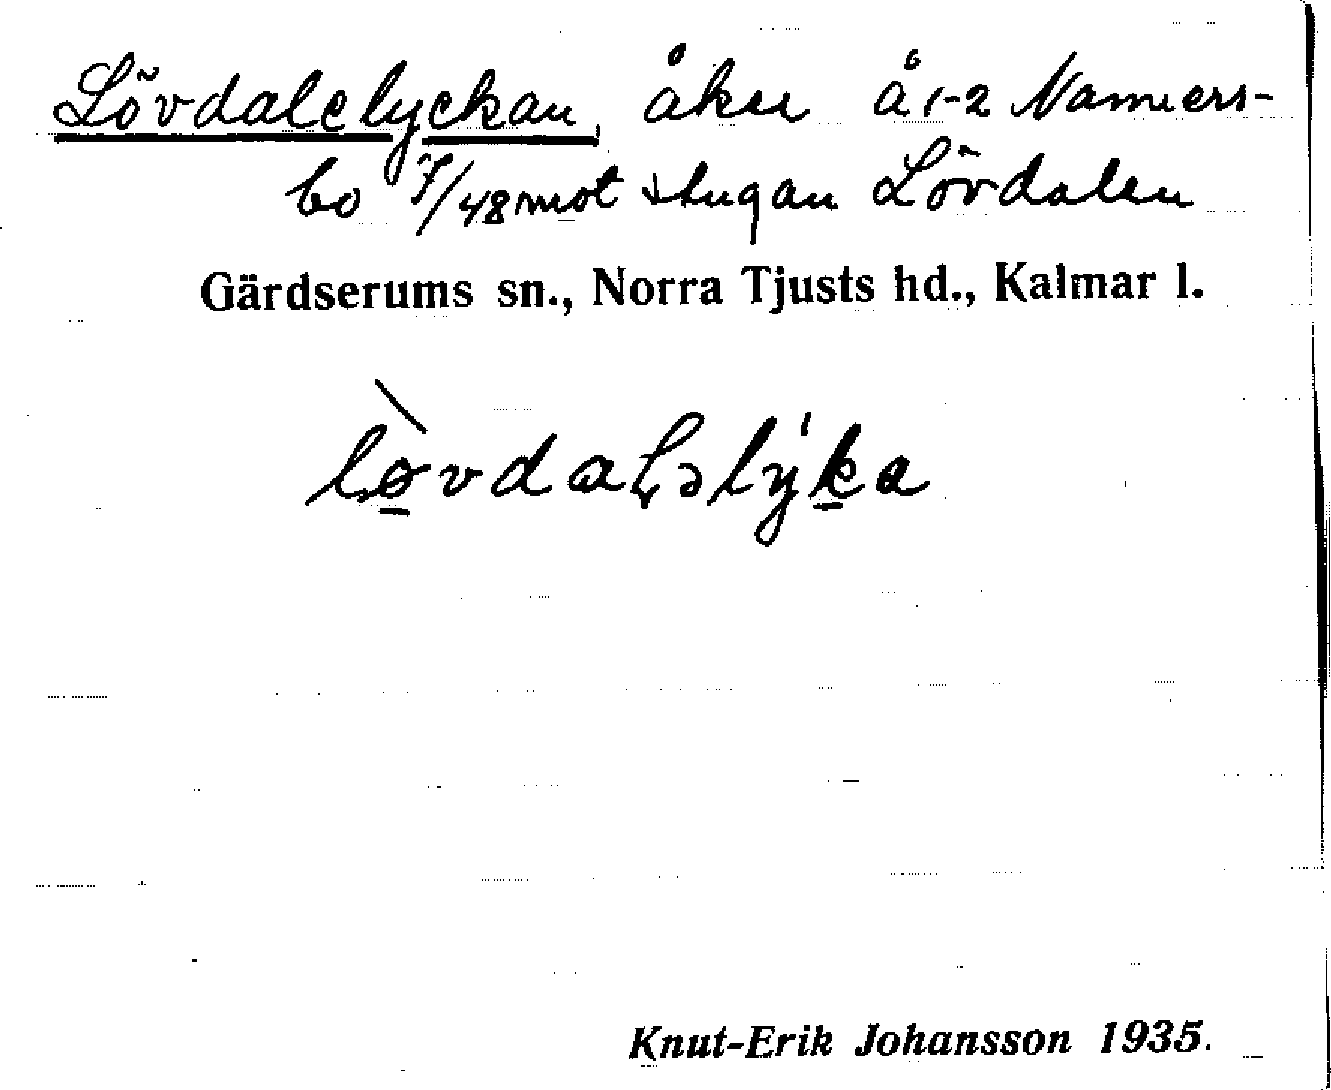 Lövdalelyckan, åker å 1-2 Namners-
bo 7/48 mot stugan Lövdalen
Gärdserums sn., Norra Tjusts hd., Kalmar l.
Knut-Erik Johansson 1935.